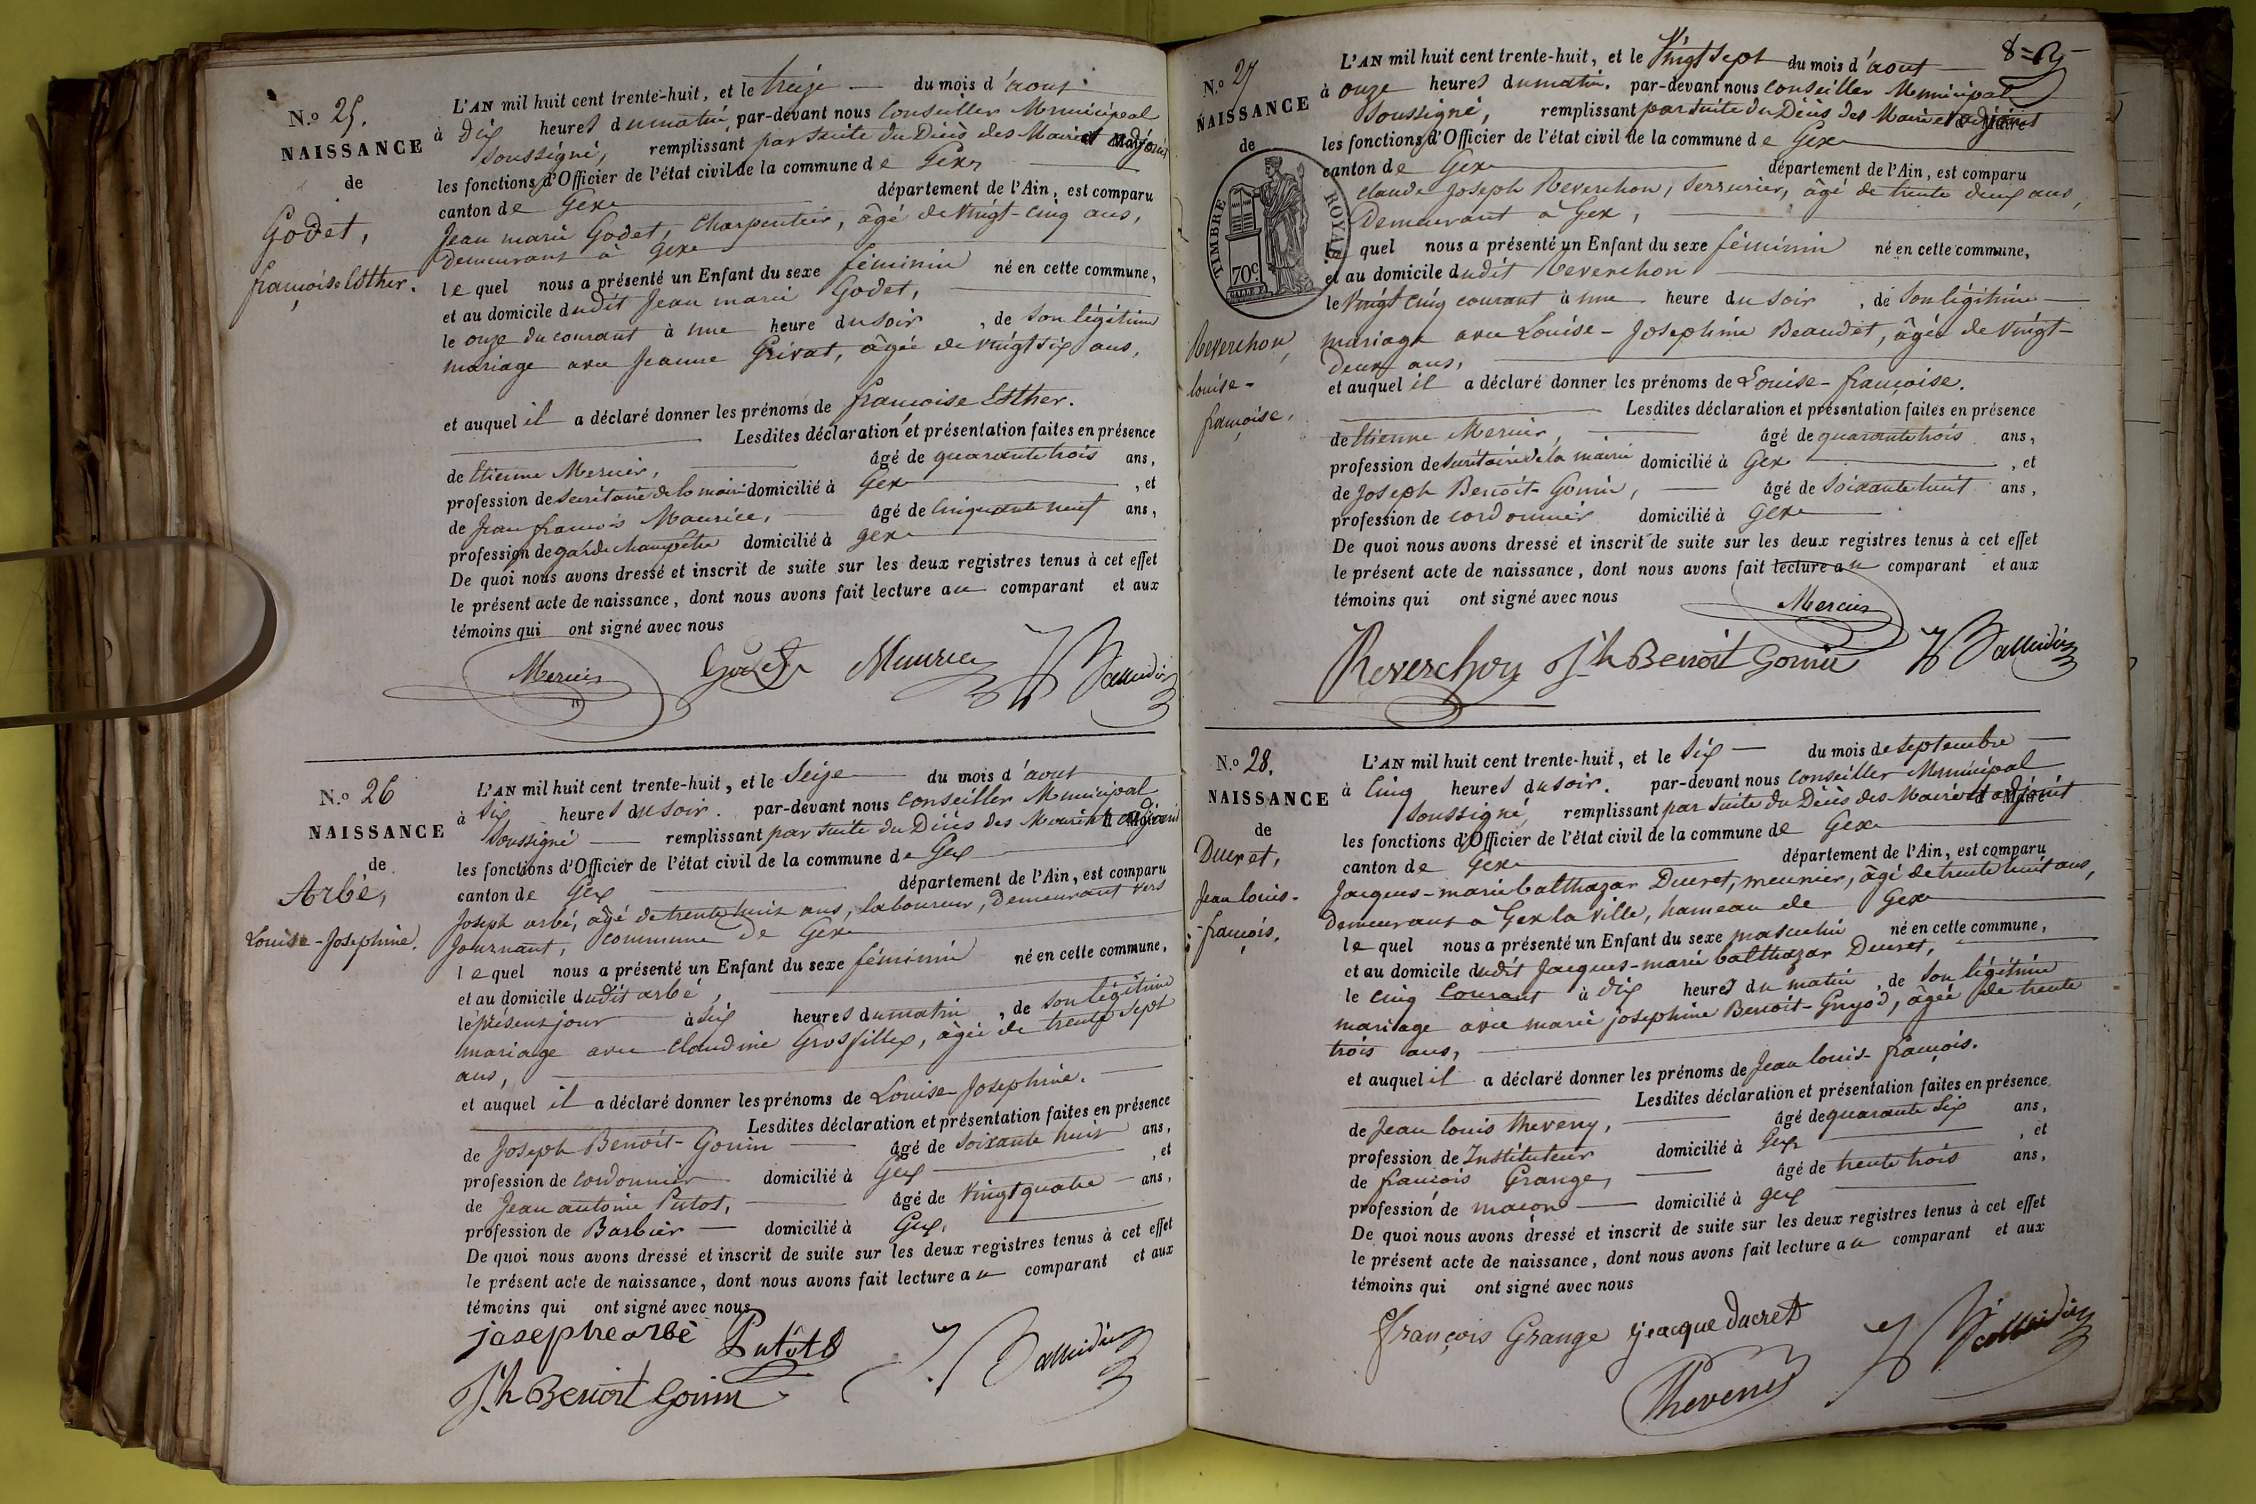 N.o 25.
NAISSANCE
de
Godet,
françoise Esther.
L'AN mil huit cent trente-huit, et le treize du mois d'aout
à dix heures du matin, par-devant nous Conseiller Municipal
soussigné, remplissant par suite du Décès des Maire et adjoint
les fonctions d'Officier de l'état civil de la commune de Gex
canton de Gex département de l'Ain, est comparu
Jean marie Godet, charpentier, âgé de vingt-cinq ans,
demeurant à Gex
lequel nous a présenté un Enfant du sexe féminin né en cette commune,
et au domicile dudit Jean marie Godet,
le onze du courant à une heure du soir, de son légitime
mariage avec Jeanne Grivat, âgée de vingt six ans,
et auquel il a déclaré donner les prénoms de françoise Esther.
Lesdites déclaration et présentation faites en présence
de Etienne Mercier, âgé de quarante trois ans,
profession de secrétaire de la mairie domicilié à Gex, et
de Jean françois Maurice, âgé de cinquante neuf ans,
profession de garde champêtre domicilié à Gex
De quoi nous avons dressé et inscrit de suite sur les deux registres tenus à cet effet
le présent acte de naissance, dont nous avons fait lecture au comparant et aux
témoins qui ont signé avec nous
Mercier Godet Maurice
N.o 26
NAISSANCE
de
Arbé,
Louise-Josephine.
L'AN mil huit cent trente-huit, et le Seize du mois d'aout
à six heures du soir. par-devant nous Conseiller Municipal
soussigné remplissant par suite du Décès des Maire et adjoint
les fonctions d'Officier de l'état civil de la commune de Gex
canton de Gex département de l'Ain, est comparu
Joseph arbé, âgé de trente huit ans, laboureur, demeurant vers
Journant, commune de Gex
lequel nous a présenté un Enfant du sexe féminin né en cette commune,
et au domicile dudit arbé,
le présent jour à six heures du matin, de son légitime
mariage avec Claudine Grosfillex, âgée de trente sept
ans,
et auquel il a déclaré donner les prénoms de Louise Josephine.
Lesdites déclaration et présentation faites en présence
de Joseph Benoit-Gonin âgé de soixante huit ans,
profession de cordonnier domicilié à Gex, et
de Jean antoine Putot, âgé de vingt quatre ans,
profession de Barbier domicilié à Gex,
De quoi nous avons dressé et inscrit de suite sur les deux registres tenus à cet effet
le présent acte de naissance, dont nous avons fait lecture au comparant et aux
témoins qui ont signé avec nous
josephe arbé Putot
Jh Benoit Gonin
N.o 27
NAISSANCE
de
TIMBRE ROYAL
70c
Reverchon,
louise-
françoise.
L'AN mil huit cent trente-huit, et le Vingt sept du mois d'aout
à onze heures du matin. par-devant nous Conseiller Municipal
soussigné, remplissant par suite du Décès des Maire et adjoint
les fonctions d'Officier de l'état civil de la commune de Gex
canton de Gex département de l'Ain, est comparu
Claude Joseph Reverchon, serrurier, âgé de trente deux ans,
Demeurant à Gex,
lequel nous a présenté un Enfant du sexe féminin né en cette commune,
et au domicile dudit Reverchon
le vingt cinq courant à une heure du soir, de son légitime
mariage avec Louise-Josephine Beaudet, âgée de vingt-
deux ans,
et auquel il a déclaré donner les prénoms de Louise-françoise.
Lesdites déclaration et présentation faites en présence
de Etienne Mercier, âgé de quarante trois ans,
profession de secrétaire de la mairie domicilié à Gex, et
de Joseph Benoit-Gonin, âgé de soixante huit ans,
profession de cordonnier domicilié à Gex
De quoi nous avons dressé et inscrit de suite sur les deux registres tenus à cet effet
le présent acte de naissance, dont nous avons fait lecture au comparant et aux
témoins qui ont signé avec nous
Mercier
Reverchon Jh Benoit Gonin
N.o 28.
NAISSANCE
de
Ducret,
Jean louis-
-françois.
L'AN mil huit cent trente-huit, et le Six du mois de septembre
à cinq heures du soir. par-devant nous Conseiller Municipal
soussigné, remplissant par suite du Décès des Maire et adjoint
les fonctions d'Officier de l'état civil de la commune de Gex
canton de Gex département de l'Ain, est comparu
Jacques-marie balthazar Ducret, meunier, âgé de trente huit ans,
demeurant à Gex la ville, hameau de Gex
lequel nous a présenté un Enfant du sexe masculin né en cette commune,
et au domicile dudit Jacques-marie balthazar Ducret,
le cinq Courant à dix heures du matin, de son légitime
mariage avec marie josephine Benoit-Guyod, âgée de trente
trois ans,
et auquel il a déclaré donner les prénoms de Jean louis-françois.
Lesdites déclaration et présentation faites en présence
de Jean louis theveny, âgé de quarante six ans,
profession de Instituteur domicilié à Gex, et
de françois Grange, âgé de trente trois ans,
profession de maçon domicilié à Gex
De quoi nous avons dressé et inscrit de suite sur les deux registres tenus à cet effet
le présent acte de naissance, dont nous avons fait lecture au comparant et aux
témoins qui ont signé avec nous
François Grange jeacque ducret